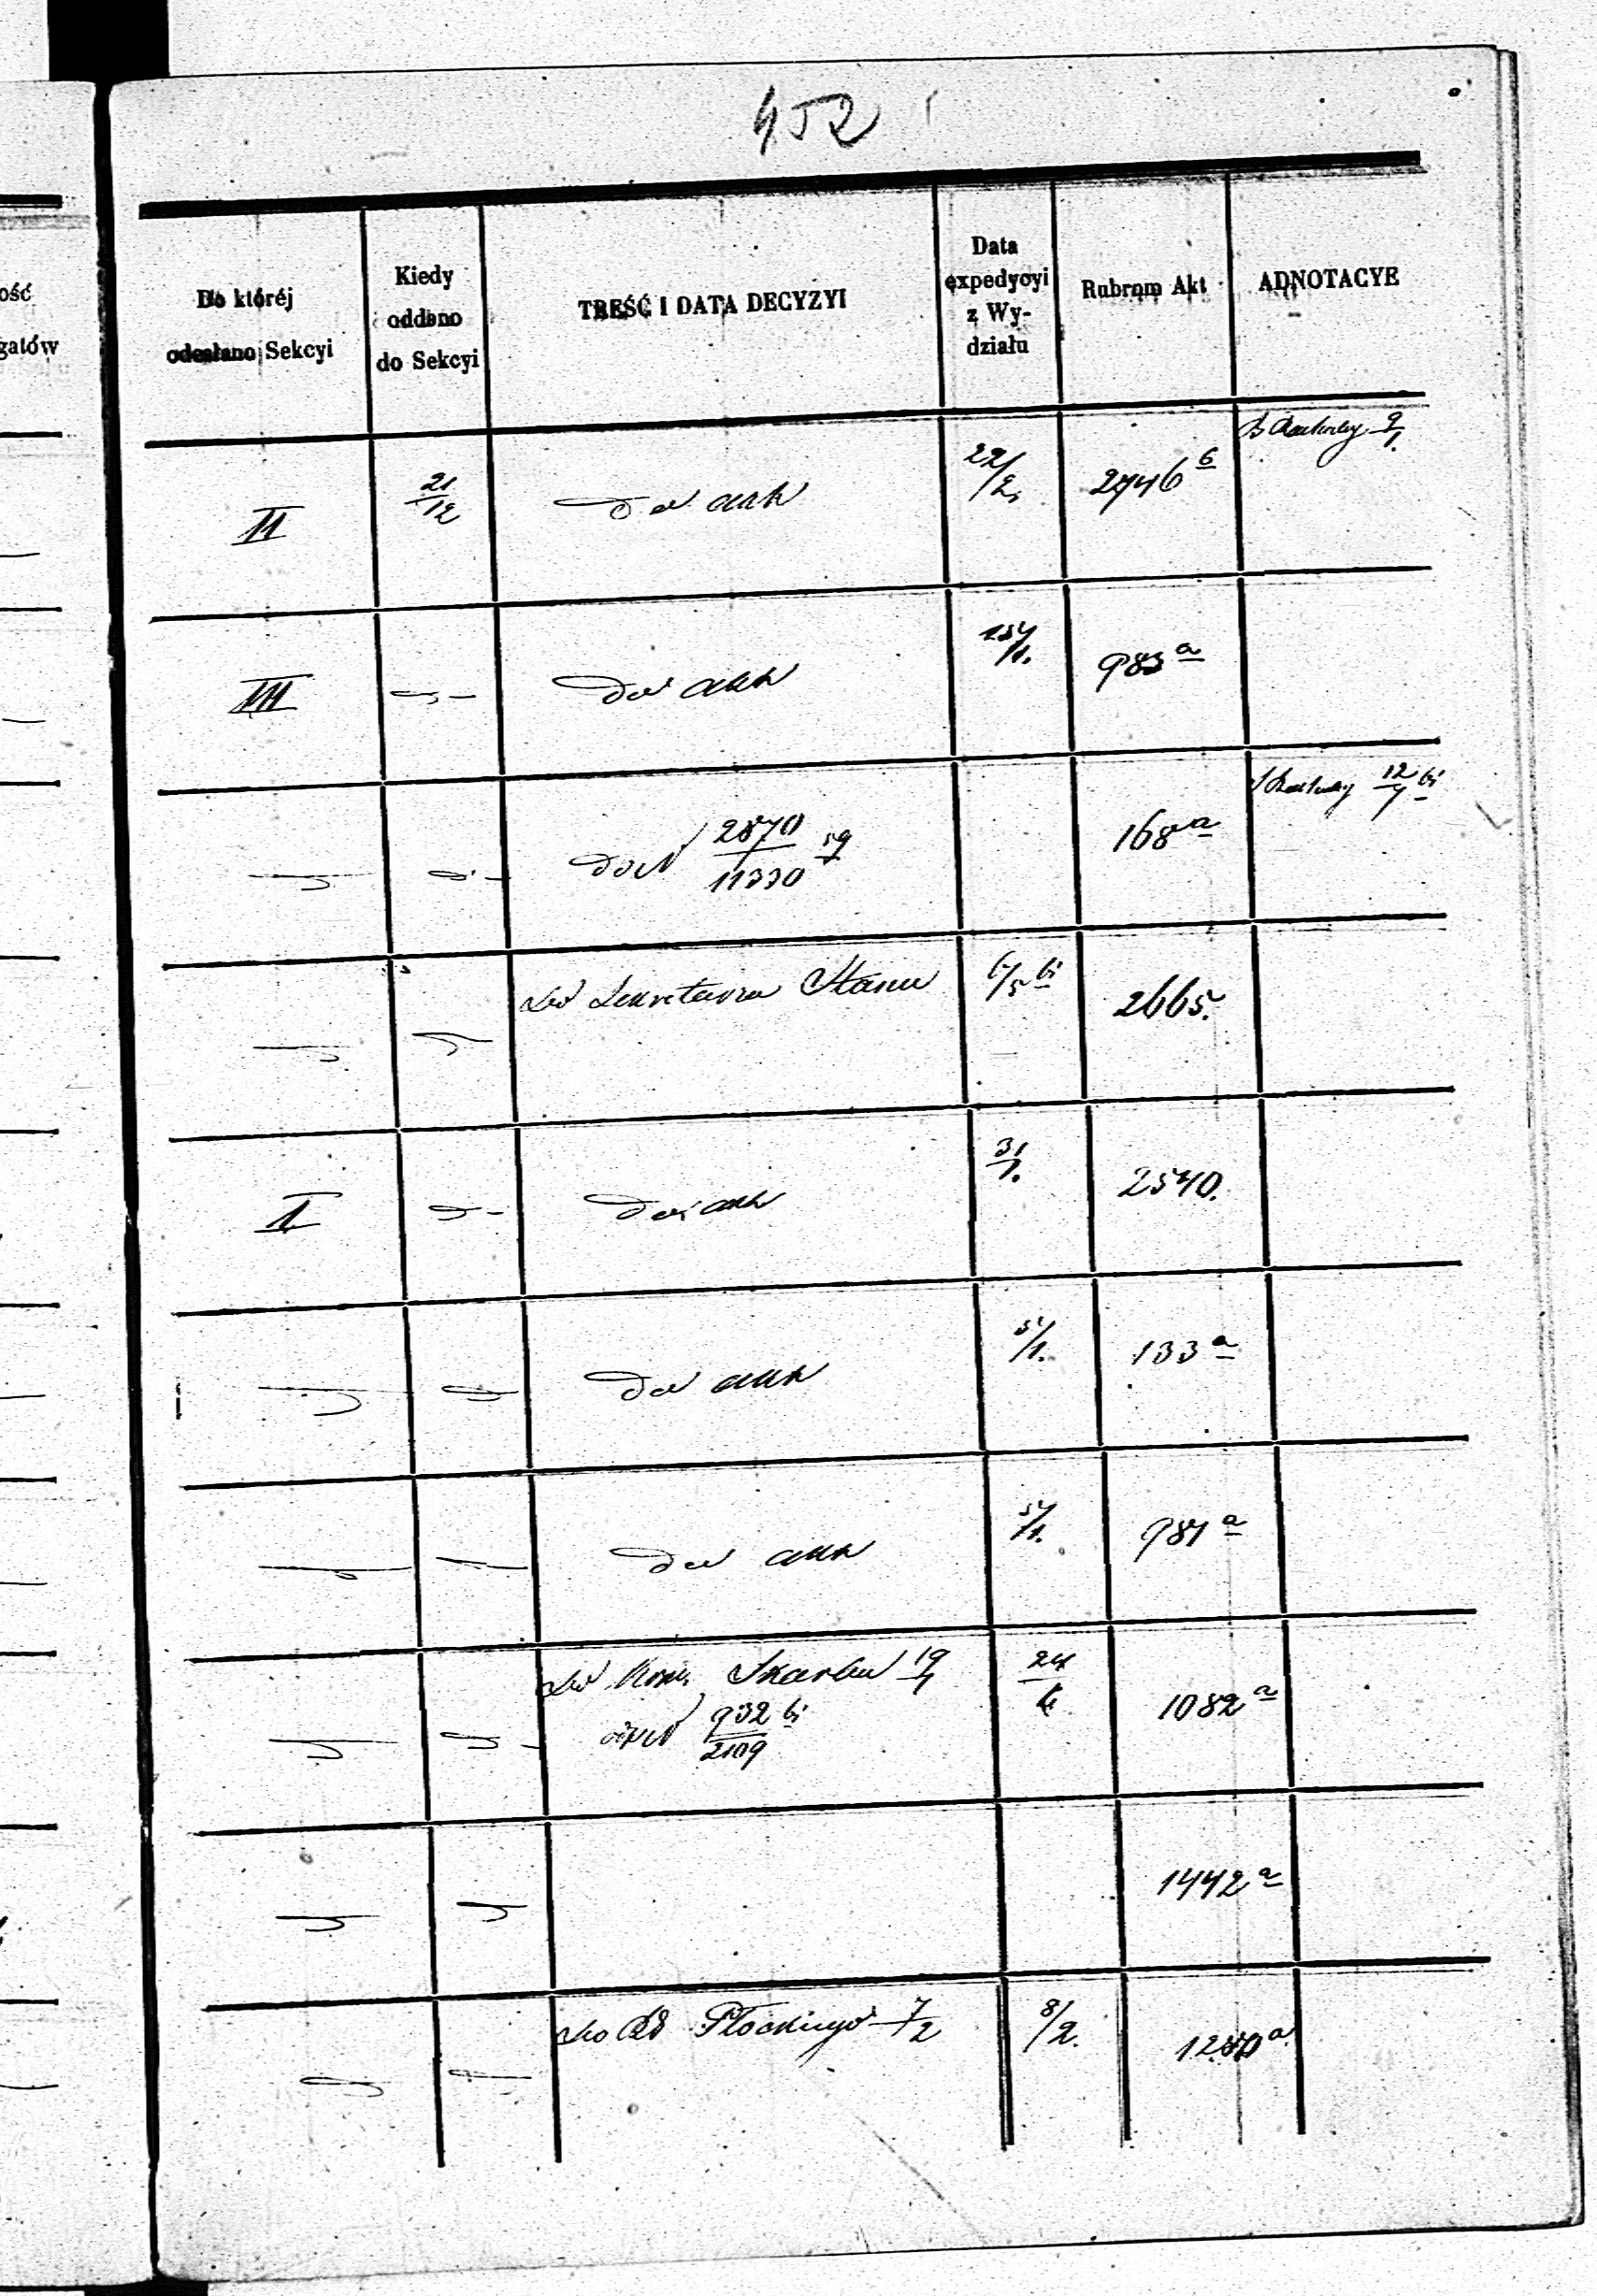 452
ość
gatów
Do któréj
odesłano Sekcyi
Kiedy
oddano
do Sekcyi
TREŚĆ I DATA DECYZYI
Data
expedycyi
z Wy-
działu
Rubrum Akt
ADNOTACYE
II 21/12 do akt 22/2. 2746 b 9/1.
III do akt 1. 983 a
do N 2870/11330 59 168 a 12/7
Do Sekretarza Stanu 2665.
I do akt 31/1. 2540.
do akt 1. 133 a
do akt 1. 987 a
Do Kom. Skarbu 19/4 24/4 1082 a
N 932/2109
1442 a
Do Płockiego 7/2 8/2. a